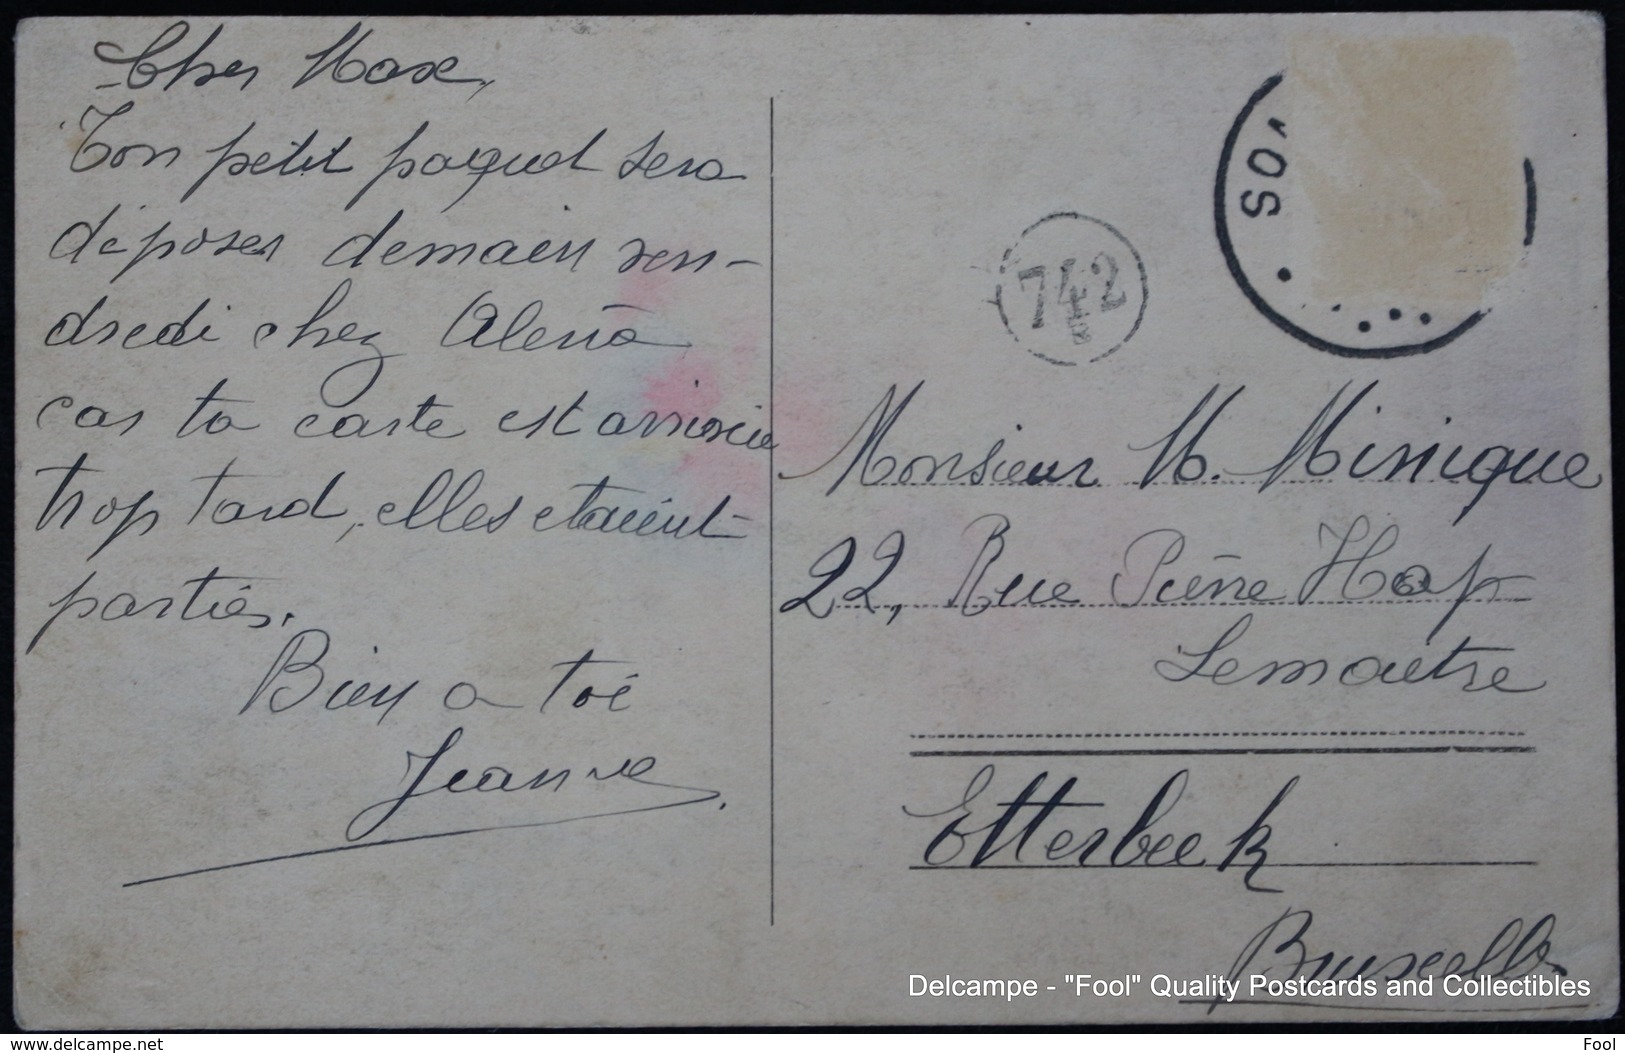 Cher Max,
Ton petit paquet sera
déposer demain ven-
dredi chez Alexia
car ta carte est arrivée
trop tard, elles etaient
parties.
Bien a toi
Jeanne
SOI
742
8
Monsieur M. Minique
22, Rue Pierre Hap
Lemaitre
Etterbeek
Bruxelles
Delcampe - "Fool" Quality Postcards and Collectibles
www.delcampe.net
Fool